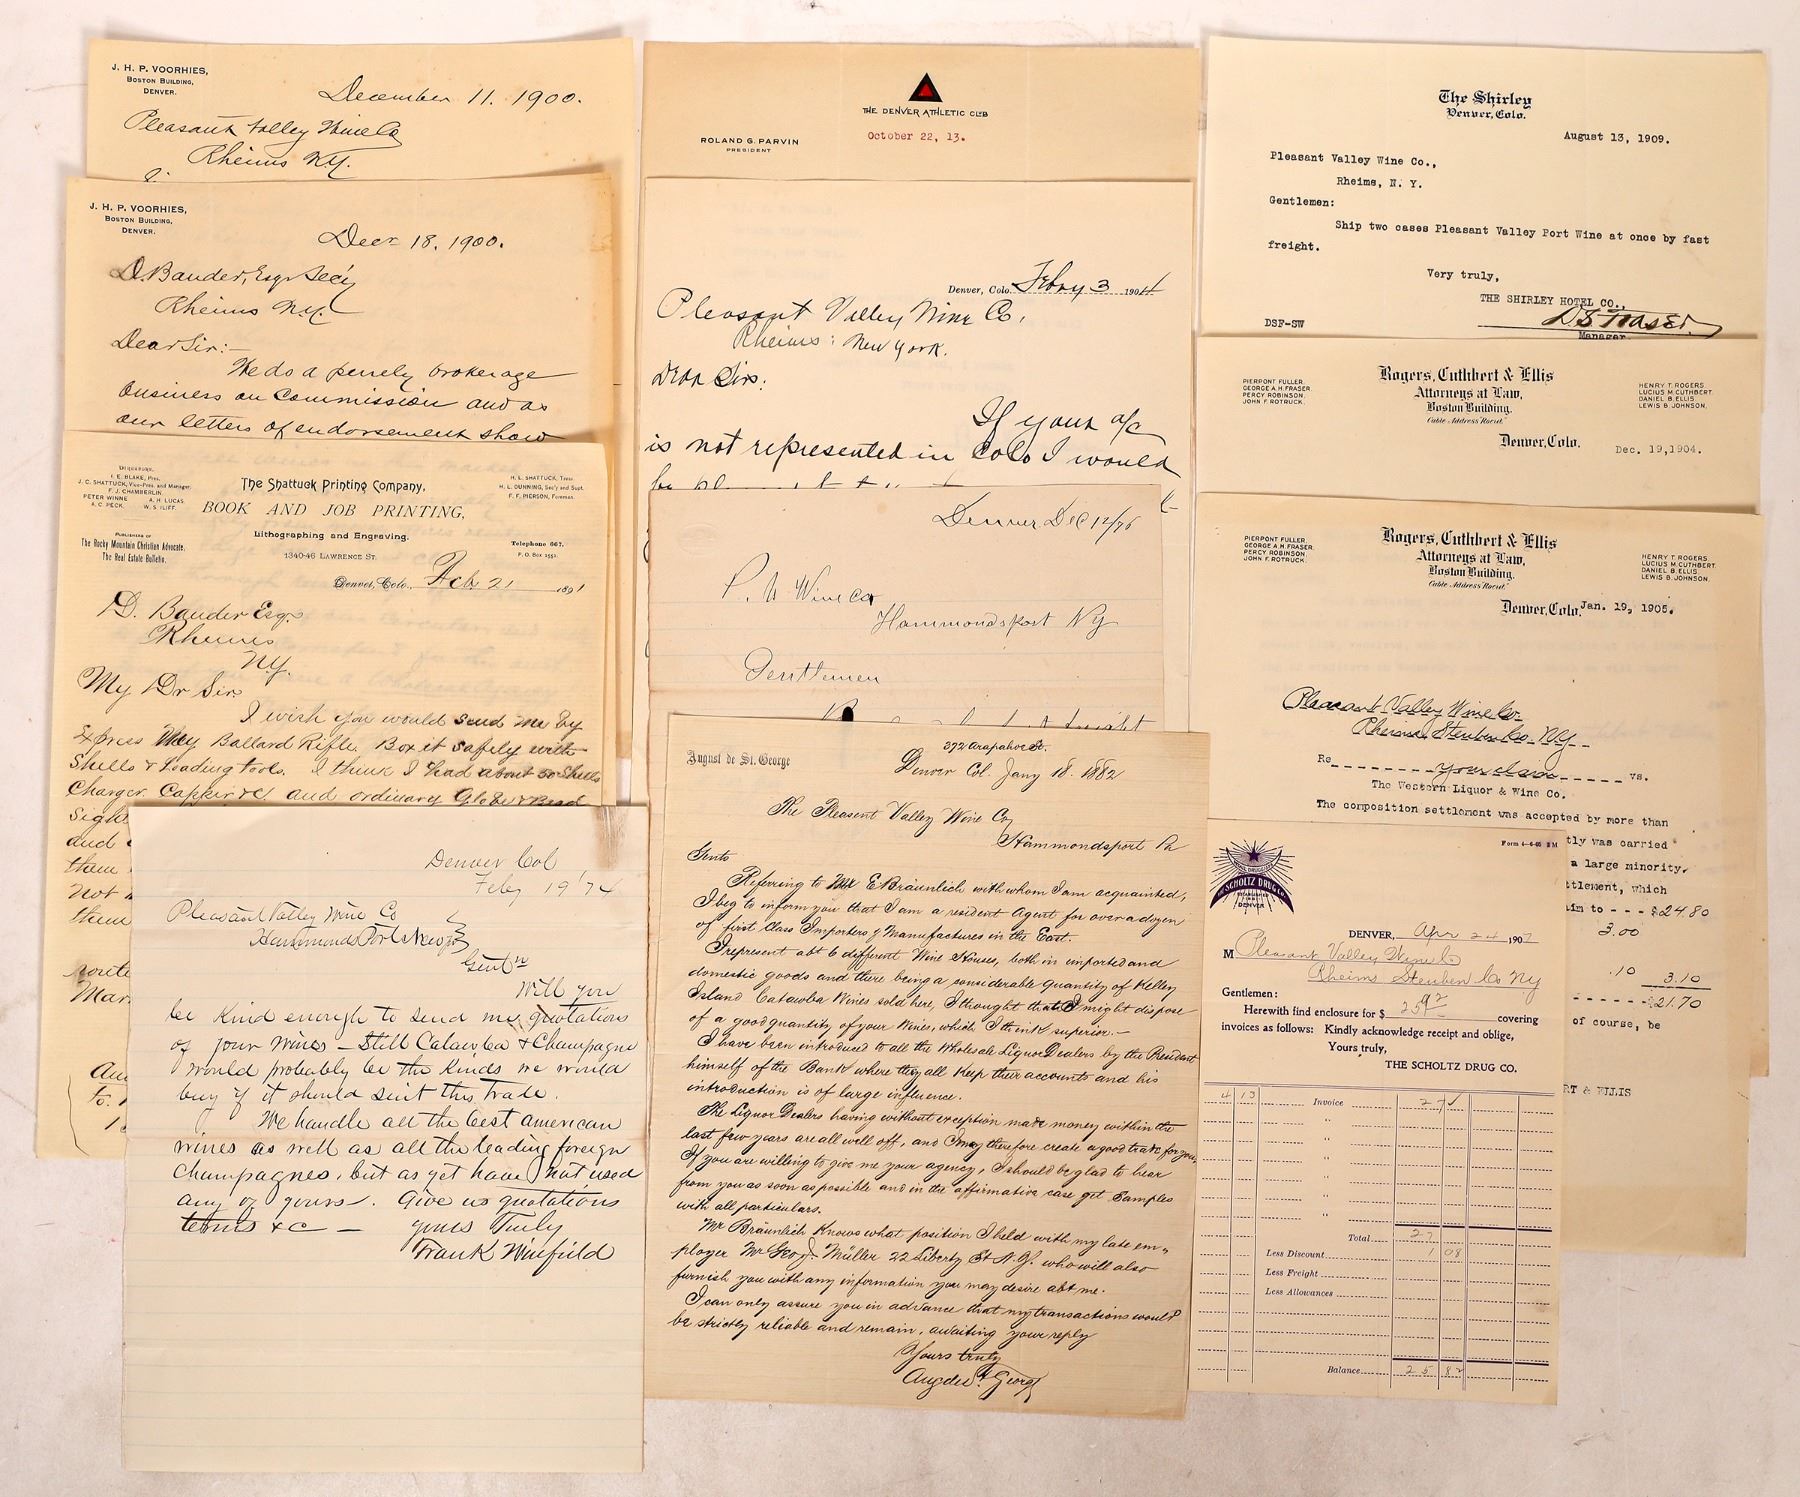 J. H. P. VOORHIES,
BOSTON BUILDING,
DENVER.
December 11. 1900.
Pleasant Valley Wine Co
Rheims N.Y.
J. H. P. VOORHIES,
BOSTON BUILDING,
DENVER.
Decr 18. 1900.
D. Bauder, Esqr Sec'y
Rheims N.Y.
Dear Sir:-
We do a purely brokerage
business on commission and as
our letters of endorsement show
I. E. BLAKE, Pres.
J. C. SHATTUCK, Vice-Pres. and Manager.
F. J. CHAMBERLIN.
PETER WINNE A. H. LUCAS.
A. C. PECK. W. S. ILIFF.
The Shattuck Printing Company,
BOOK AND JOB PRINTING,
Lithographing and Engraving.
1340-46 LAWRENCE ST.
H. L. SHATTUCK, Treas.
H. L. DUNNING, Sec'y and Supt.
F. F. PIERSON, Foreman.
PUBLISHERS OF
The Rocky Mountain Christian Advocate.
The Real Estate Bulletin.
Telephone 667.
P. O. Box 1552.
Denver, Colo., Feb 21 1891
D. Bauder Esq.
Rheims
N.Y.
My Dr Sir
I wish you would send me by
Express My Ballard Rifle. Box it safely with
Shells & Loading tools. I think I had about 50 Shells
Charger, Capper &c and ordinary Globe & Bead
Sight
and
them
not
them
route
Mar
Denver Col
Feby 19 '74
Pleasant Valley Wine Co
Hammondsport New York
Gentn
Will you
be kind enough to send me quotations
of your wines - Still Catawba & Champagne
would probably be the kinds we would
buy if it should suit this trade.
We handle all the best american
wines as well as all the leading foreign
Champagnes, but as yet have not used
any of yours. Give us quotations
terms &c - yours Truly
Frank Winfield
THE DENVER ATHLETIC CLUB
October 22, 13.
ROLAND G. PARVIN
PRESIDENT
Denver, Colo. Febry 3 1904
Pleasant Valley Wine Co.
Rheims: New York.
Dear Sirs:
If your a/c
is not represented in Colo I would
Denver Dec 12/76
P. V. Wine Co
Hammondsport NY
Gentlemen
August de St. George
372 Arapahoe St.
Denver Col. Jany 18. 1882
The Pleasant Valley Wine Co
Hammondsport Pa
Gents
Referring to Mr E. Bräunlich with whom I am acquainted,
I beg to inform you that I am a resident Agent for over a dozen
of first Class Importers & Manufactures in the East.
I represent abt 6 different Wine Houses, both in imported and
domestic goods and there being a considerable quantity of Kelley
Island Catawba Wines sold here, I thought that I might dispose
of a good quantity of your Wines, which I think superior.-
I have been introduced to all the Wholesale Liquor Dealers by the President
himself of the Bank where they all keep their accounts and his
introduction is of large influence.
The Liquor Dealers having without exception made money within the
last few years are all well off, and I may therefore create a good trade for you,
If you are willing to give me your agency, I should be glad to hear
from you as soon as possible and in the affirmative case get Samples
with all particulars.
Mr Bräunlich knows what position I held with my late em-
ployer Mr Geo. J. Müller 22 Liberty St N.Y. who will also
furnish you with any information you may desire abt me.
I can only assure you in advance that my transactions would
be strictly reliable and remain, awaiting your reply
Yours truly
Aug de St George
The Shirley
Denver, Colo.
August 13, 1909.
Pleasant Valley Wine Co.,
Rheims, N. Y.
Gentlemen:
Ship two cases Pleasant Valley Port Wine at once by fast
freight.
Very truly,
THE SHIRLEY HOTEL CO.,
D S Fraser.
DSF-SW
Manager
PIERPONT FULLER.
GEORGE A. H. FRASER.
PERCY ROBINSON.
JOHN F. ROTRUCK.
Rogers, Cuthbert & Ellis
Attorneys at Law,
Boston Building.
Cable Address "Rocut."
HENRY T. ROGERS.
LUCIUS M. CUTHBERT.
DANIEL B. ELLIS.
LEWIS B. JOHNSON.
Denver, Colo. Dec. 19, 1904.
PIERPONT FULLER.
GEORGE A. H. FRASER.
PERCY ROBINSON.
JOHN F. ROTRUCK.
Rogers, Cuthbert & Ellis
Attorneys at Law,
Boston Building.
Cable Address "Rocut."
HENRY T. ROGERS.
LUCIUS M. CUTHBERT.
DANIEL B. ELLIS.
LEWIS B. JOHNSON.
Denver, Colo. Jan. 19, 1905.
Pleasant Valley Wine Co.
Rheims Steuben Co. N.Y.
Re your claim vs.
The Western Liquor & Wine Co.
The composition settlement was accepted by more than
tly was carried
a large minority.
ttlement, which
im to - - - $24.80
3.00
.10 3.10
- - - - - - $21.70
of course, be
RT & ELLIS
Form 4-6-05 5M
THE SCHOLTZ DRUG CO.
DENVER
DENVER, Apr 24 1907
M Pleasant Valley Wine Co
Rheims Steuben Co NY
Gentlemen:
Herewith find enclosure for $ 25.92 covering
invoices as follows: Kindly acknowledge receipt and oblige,
Yours truly,
THE SCHOLTZ DRUG CO.
4 13 Invoice 27
Total 27
Less Discount 1 08
Less Freight
Less Allowances
Balance 25 92